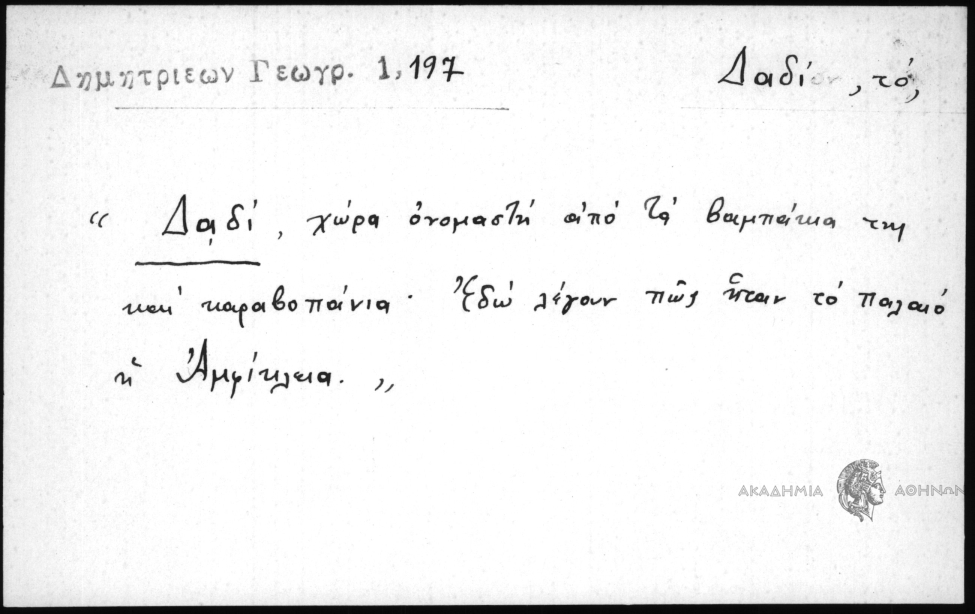 Δημητριεων Γεωγρ. 1, 197
Δαδί, τό,
“ Δαδί, χώρα ὀνομαστή ἀπό τά βαμπάκια της
καί καραβοπάνια· Ἐδώ λέγουν πῶς ἦταν τό παλαιό
ἡ Ἀμφίκλεια. „
ΑΚΑΔΗΜΙΑ ΑΘΗΝΩΝ